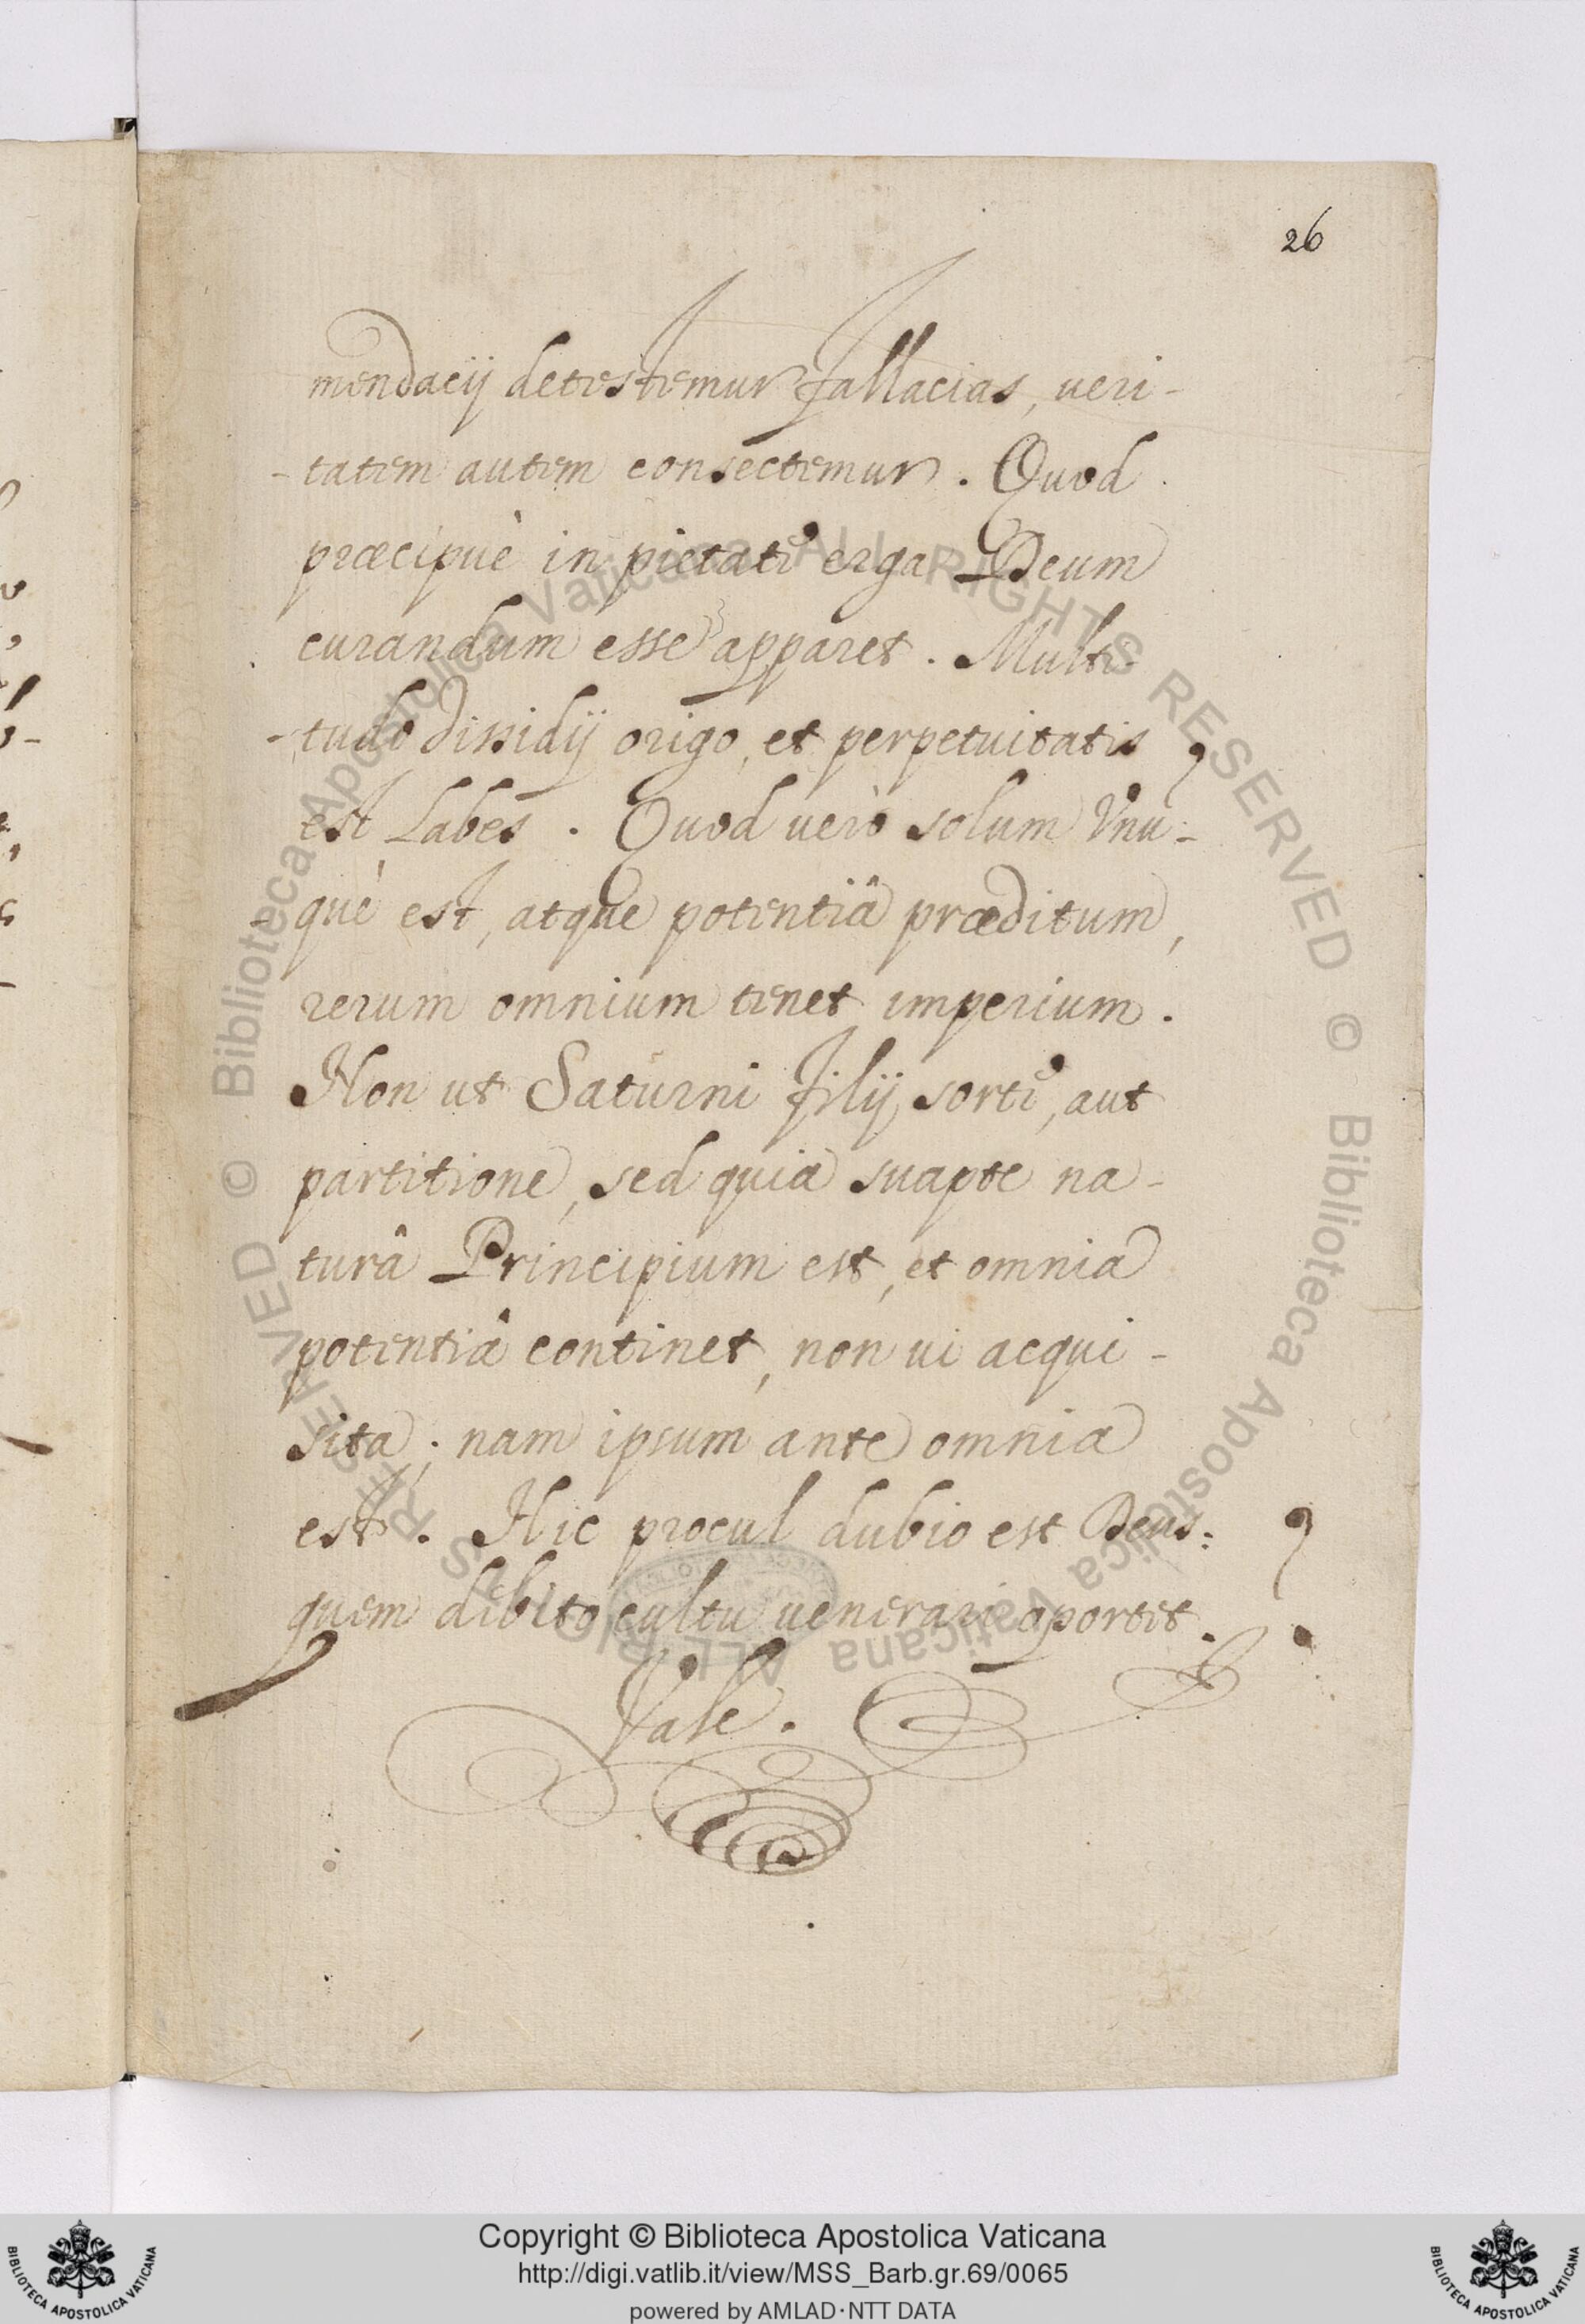 26
mendacij detestemur fallacias, veri-
-tatem autem consectemur. Quod
præcipuè in pietate erga Deum
curandum esse apparet. Multi-
-tudo dissidij origo, et perpetuitatis
est Labes. Quod verò solum Vnu-
-què est, atque potentiâ præditum,
rerum omnium tenet imperium.
Non ut Saturni filij sorte, aut
partitione, sed quia suapte na-
turâ Principium est, et omnia
potentiâ continet, non ui acqui-
sita; nam ipsum ante omnia
est. Hic procul dubio est Deus:
quem debito cultu uenerari oportet.
Vale.
© Biblioteca Apostolica Vaticana ALL RIGHTS RESERVED © Biblioteca Apostolica Vaticana ALL RIGHTS RESERVED
Copyright © Biblioteca Apostolica Vaticana
http://digi.vatlib.it/view/MSS_Barb.gr.69/0065
powered by AMLAD·NTT DATA
BIBLIOTECA APOSTOLICA VATICANA
BIBLIOTECA APOSTOLICA VATICANA